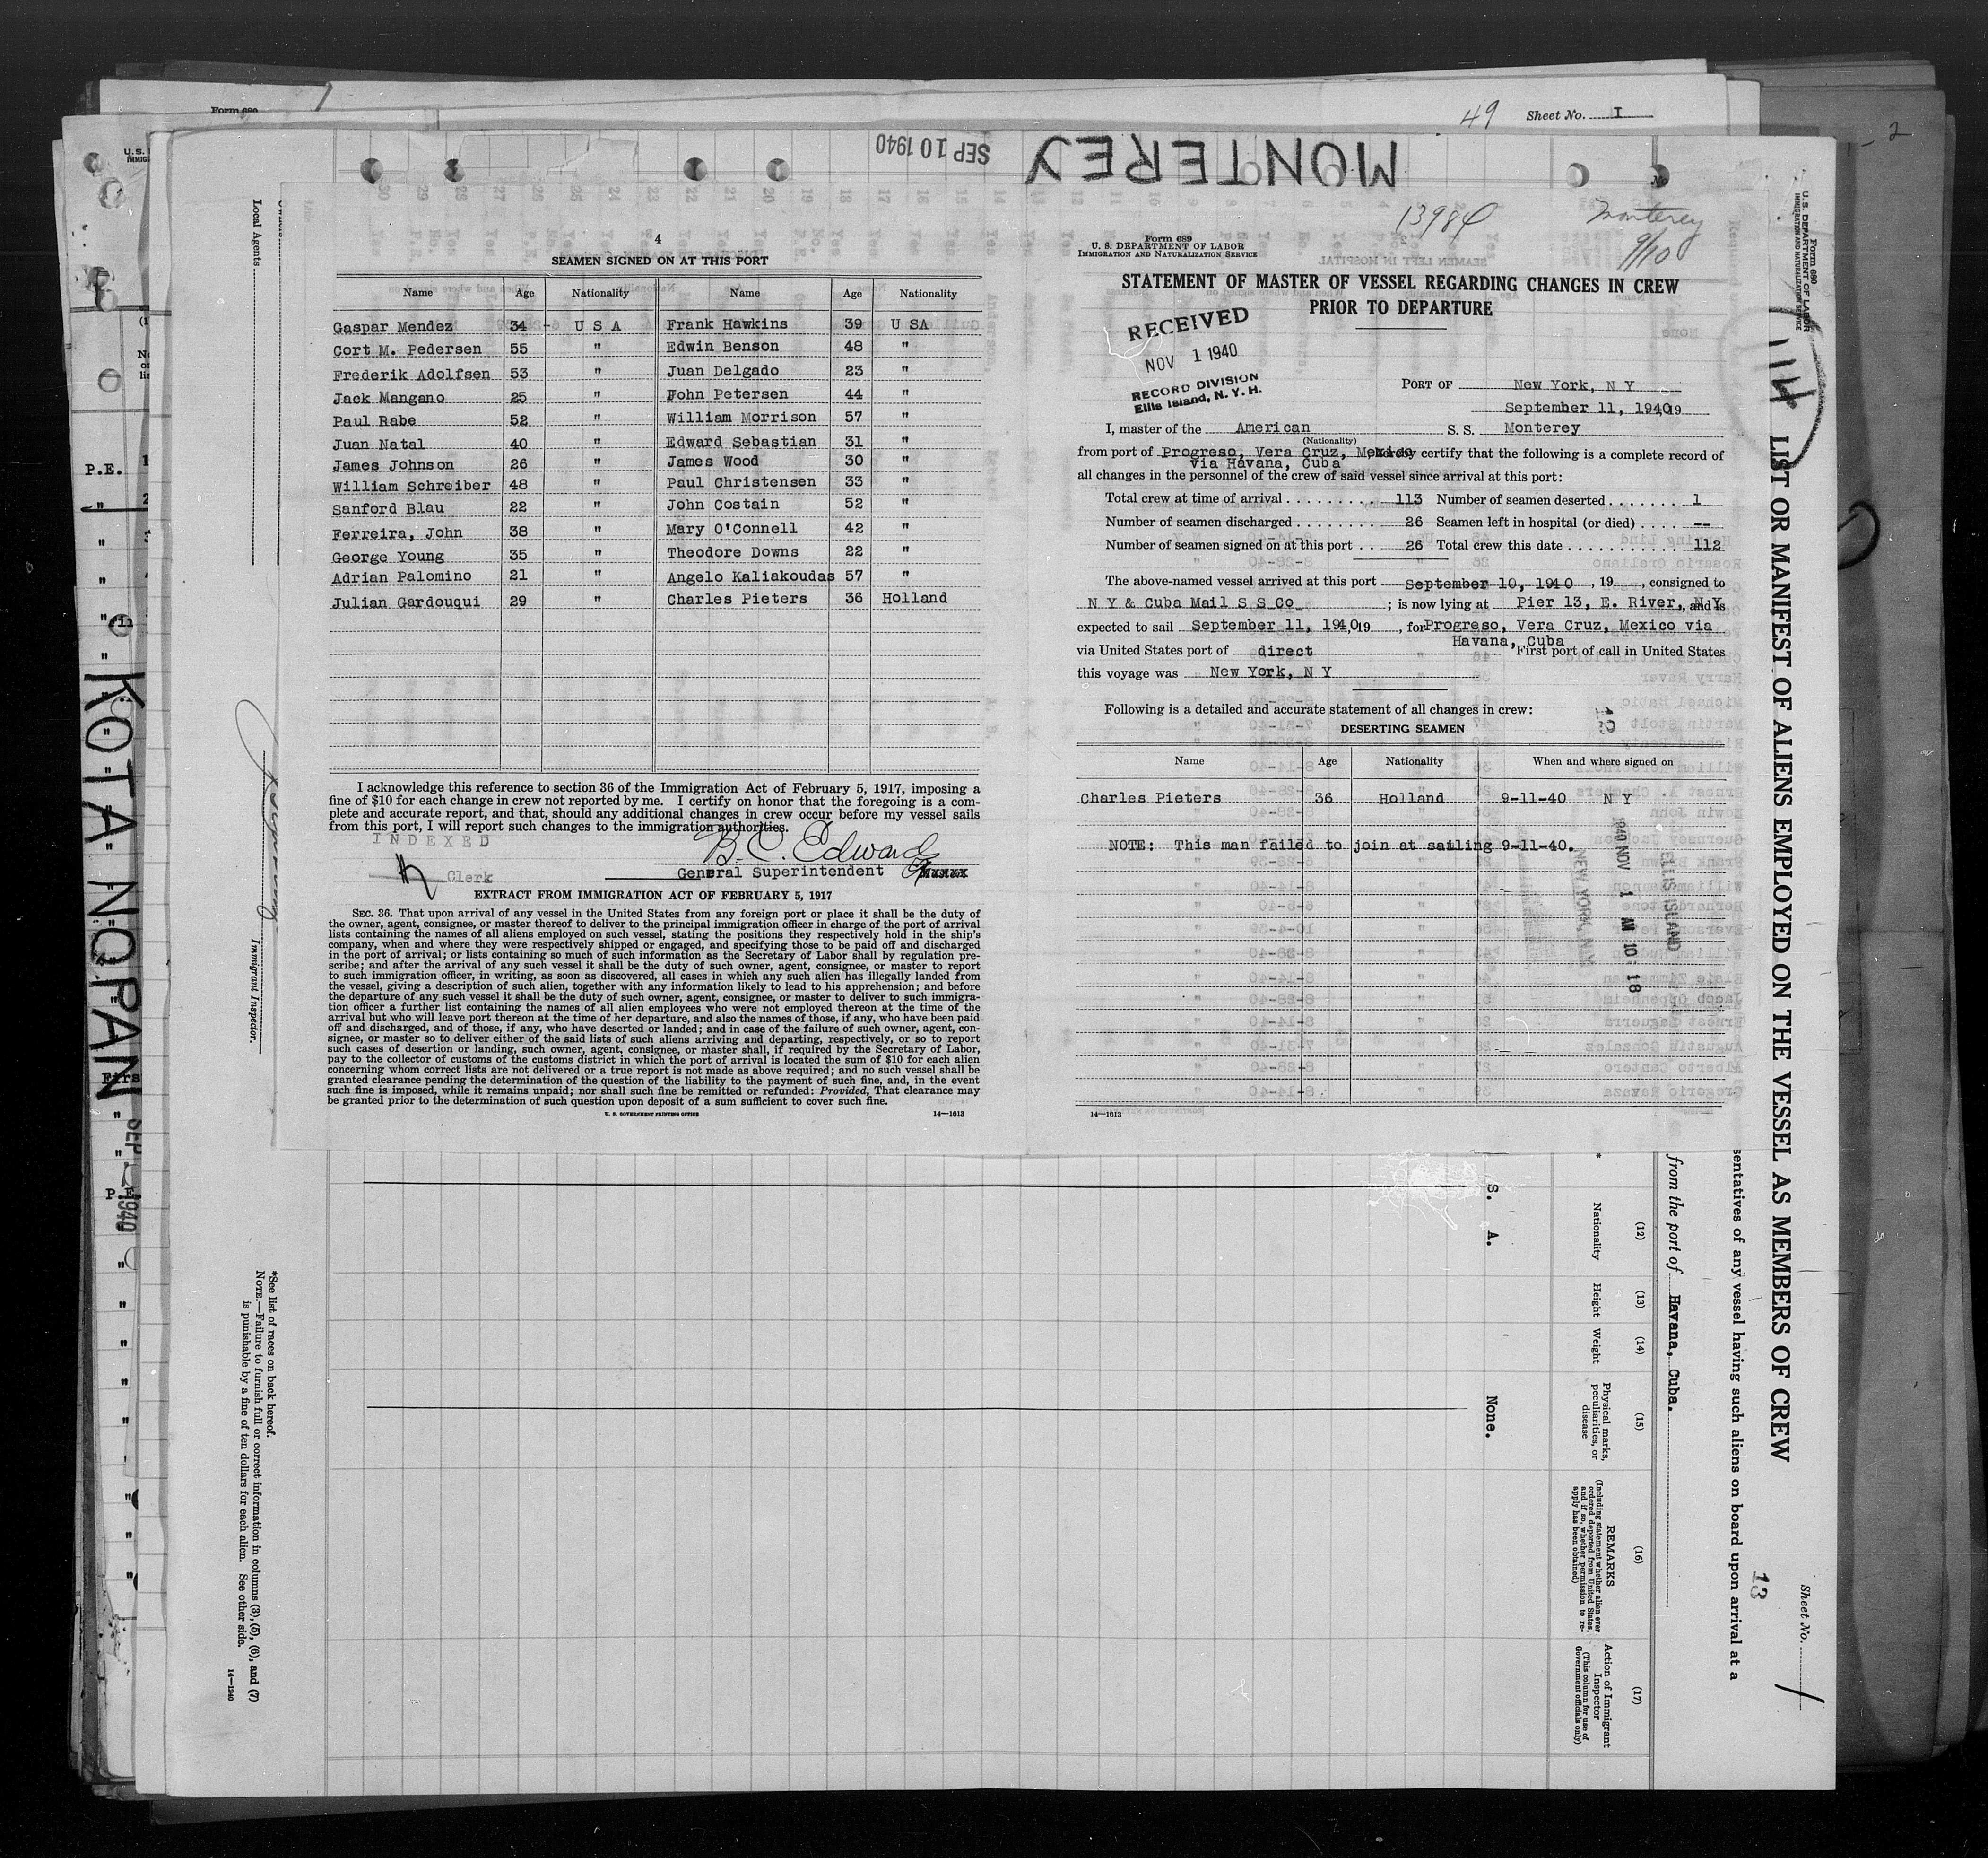 Form 680
49 Sheet No. I
MONTEREY
SEP 10 1940
2
4
SEAMEN SIGNED ON AT THIS PORT
Name Age Nationality Name Age Nationality
Gaspar Mendez 34 - U S A Frank Hawkins 39 U SA
Cort M. Pedersen 55 " Edwin Benson 48 "
Frederik Adolfsen 53 " Juan Delgado 23 "
Jack Mangano 25 " John Petersen 44 "
Paul Rabe 52 " William Morrison 57 "
Juan Natal 40 " Edward Sebastian 31 "
James Johnson 26 " James Wood 30 "
William Schreiber 48 " Paul Christensen 33 "
Sanford Blau 22 " John Costain 52 "
Ferreira, John 38 " Mary O'Connell 42 "
George Young 35 " Theodore Downs 22 "
Adrian Palomino 21 " Angelo Kaliakoudas 57 "
Julian Gardouqui 29 " Charles Pieters 36 Holland
I acknowledge this reference to section 36 of the Immigration Act of February 5, 1917, imposing a
fine of $10 for each change in crew not reported by me. I certify on honor that the foregoing is a com-
plete and accurate report, and that, should any additional changes in crew occur before my vessel sails
from this port, I will report such changes to the immigration authorities.
INDEXED
B. C. Edwards
Clerk
General Superintendent
EXTRACT FROM IMMIGRATION ACT OF FEBRUARY 5, 1917
SEC. 36. That upon arrival of any vessel in the United States from any foreign port or place it shall be the duty of
the owner, agent, consignee, or master thereof to deliver to the principal immigration officer in charge of the port of arrival
lists containing the names of all aliens employed on such vessel, stating the positions they respectively hold in the ship's
company, when and where they were respectively shipped or engaged, and specifying those to be paid off and discharged
in the port of arrival; or lists containing so much of such information as the Secretary of Labor shall by regulation pre-
scribe; and after the arrival of any such vessel it shall be the duty of such owner, agent, consignee, or master to report
to such immigration officer, in writing, as soon as discovered, all cases in which any such alien has illegally landed from
the vessel, giving a description of such alien, together with any information likely to lead to his apprehension; and before
the departure of any such vessel it shall be the duty of such owner, agent, consignee, or master to deliver to such immigra-
tion officer a further list containing the names of all alien employees who were not employed thereon at the time of the
arrival but who will leave port thereon at the time of her departure, and also the names of those, if any, who have been paid
off and discharged, and of those, if any, who have deserted or landed; and in case of the failure of such owner, agent, con-
signee, or master so to deliver either of the said lists of such aliens arriving and departing, respectively, or so to report
such cases of desertion or landing, such owner, agent, consignee, or master shall, if required by the Secretary of Labor,
pay to the collector of customs of the customs district in which the port of arrival is located the sum of $10 for each alien
concerning whom correct lists are not delivered or a true report is not made as above required; and no such vessel shall be
granted clearance pending the determination of the question of the liability to the payment of such fine, and, in the event
such fine is imposed, while it remains unpaid; nor shall such fine be remitted or refunded: Provided, That clearance may
be granted prior to the determination of such question upon deposit of a sum sufficient to cover such fine.
U. S. GOVERNMENT PRINTING OFFICE 14—1613
13984
Monterey
9/10
Form 689
U. S. DEPARTMENT OF LABOR
IMMIGRATION AND NATURALIZATION SERVICE
STATEMENT OF MASTER OF VESSEL REGARDING CHANGES IN CREW
PRIOR TO DEPARTURE
RECEIVED
NOV 1 1940
RECORD DIVISION
Ellis Island, N. Y. H.
PORT OF New York, N Y
September 11, 1940, 19
I, master of the American S. S. Monterey
(Nationality)
from port of Progreso, Vera Cruz, Mexico hereby certify that the following is a complete record of
via Havana, Cuba
all changes in the personnel of the crew of said vessel since arrival at this port:
Total crew at time of arrival 113 Number of seamen deserted 1
Number of seamen discharged 26 Seamen left in hospital (or died) --
Number of seamen signed on at this port 26 Total crew this date 112
The above-named vessel arrived at this port September 10, 1940 , 19 , consigned to
N Y & Cuba Mail S S Co ; is now lying at Pier 13, E. River, N Y and is
expected to sail September 11, 1940, 19 , for Progreso, Vera Cruz, Mexico via
Havana, Cuba
via United States port of direct First port of call in United States
this voyage was New York, N Y
Following is a detailed and accurate statement of all changes in crew:
13
DESERTING SEAMEN
Name Age Nationality When and where signed on
Charles Pieters 36 Holland 9-11-40 N Y
NOTE: This man failed to join at sailing 9-11-40.
1940 NOV 1 AM 10 18
ELLIS ISLAND
NEW YORK, N.Y.
14—1613
Form 680
U. S. DEPARTMENT OF LABOR
IMMIGRATION AND NATURALIZATION SERVICE
114
LIST OR MANIFEST OF ALIENS EMPLOYED ON THE VESSEL AS MEMBERS OF CREW
Sheet No. 1
13
sentatives of any vessel having such aliens on board upon arrival at a
from the port of Havana, Cuba.
(12) Nationality
(13) Height
(14) Weight
(15) Physical marks, peculiarities, or disease
(16) REMARKS
(Including statement whether alien ever ordered deported from United States, and if so, whether permission to re-apply has been obtained)
(17) Action of Immigrant Inspector
(This column for use of Government officials only)
S. A. None.
Local Agents
Immigrant Inspector.
*See list of races on back hereof.
NOTE.—Failure to furnish full or correct information in columns (3), (5), (6), and (7)
is punishable by a fine of ten dollars for each alien. See other side.
14—1240
P.E.
KOTA NOPAN
SEP 1940